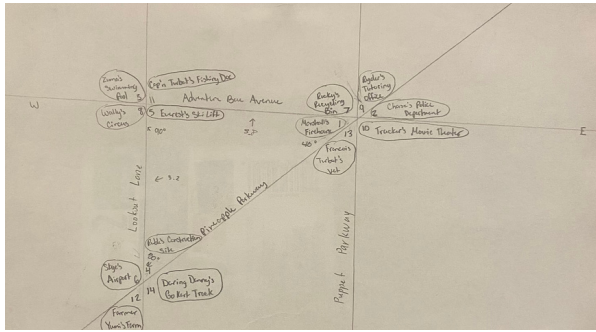 Zuma's
Swimming
Pool
5
Cap'n Turbot's Fishing Doc
11
Adventure Bay Avenue
W
Wally's
Circus
8
15
Everest's Ski Lift
90°
5.2
5.2
Rocky's
Recycling
Bin
7
Ryder's
Tutoring
Office
9
2
Chase's Police
Department
Marshall's
Firehouse
1
13
10
Tracker's Movie Theater
E
Francois
Turbot's
Vet
Lookout Lane
Pineapple Parkway
Puppet Parkway
Rubble's Construction
Site
Skye's
Airport
6
14
Daring Danny's
Go Kart Track
12
Farmer
Yumi's Farm